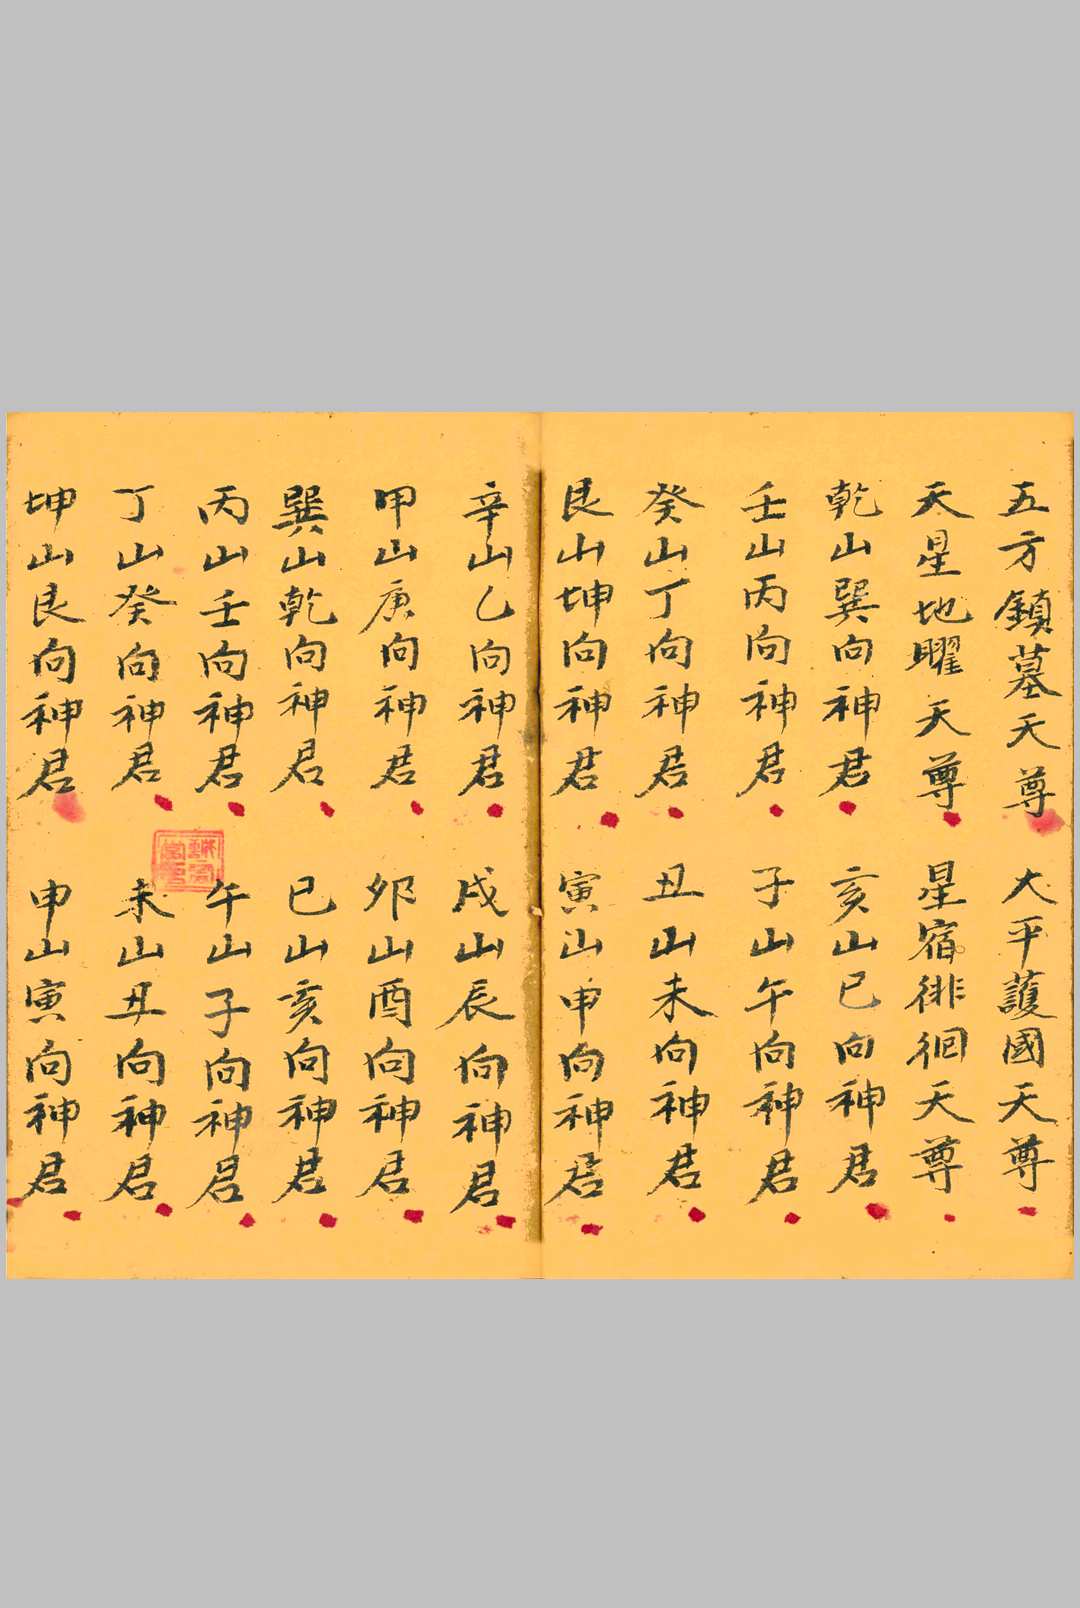 五方鎮墓天尊 大平護國天尊
天星地曜天尊 星宿徘徊天尊
乾山巽向神君 亥山巳向神君
壬山丙向神君 子山午向神君
癸山丁向神君 丑山未向神君
艮山坤向神君 寅山申向神君
辛山乙向神君 戌山辰向神君
甲山庚向神君 卯山酉向神君
巽山乾向神君 巳山亥向神君
丙山壬向神君 午山子向神君
丁山癸向神君 未山丑向神君
坤山艮向神君 申山寅向神君